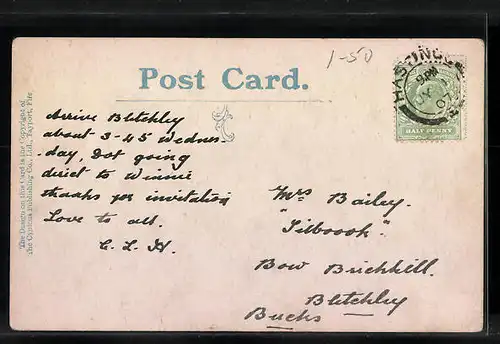 1-50
Post Card.
HASTINGS
9 PM
07
HALF PENNY
Arrive Bletchley
about 3-45 Wednes-
day, Dot going
direct to Winnie
thanks for invitation
Love to all.
C. L. H.
Mrs Bailey.
Bow Brickhill.
Bletchley
Bucks
The Design on this Card is the Copyright of
The Cynicus Publishing Co., Ltd., Tayport, Fife